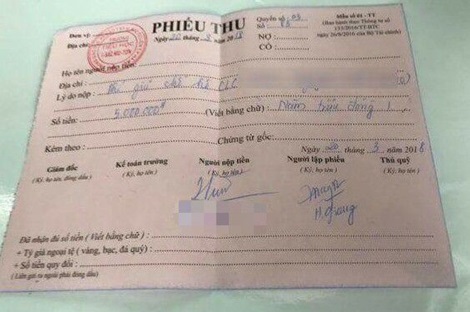 Đơn vị:
Địa chỉ:
PHIẾU THU
Ngày 20 tháng 3 năm 2018
Quyển số: 03
Số: 18
NỢ:
CÓ:
Mẫu số 01 - TT
(Ban hành theo Thông tư số
133/2016/TT-BTC
ngày 26/8/2016 của Bộ Tài chính)
Họ tên người nộp tiền:
Địa chỉ:
Lý do nộp: Phí giữ chỗ CLC
Số tiền: 5.000.000đ (Viết bằng chữ): Năm triệu đồng
Kèm theo: Chứng từ gốc:
Ngày 20 tháng 3 năm 2018
Giám đốc
(Ký, họ tên, đóng dấu)
Kế toán trưởng
(Ký, họ tên)
Người nộp tiền
(Ký, họ tên)
Người lập phiếu
(Ký, họ tên)
Thủ quỹ
(Ký, họ tên)
H.Giang
Đã nhận đủ số tiền (Viết bằng chữ):
+ Tỷ giá ngoại tệ (vàng, bạc, đá quý):
+ Số tiền quy đổi:
(Liên gửi ra ngoài phải đóng dấu)